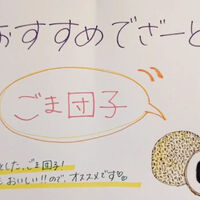 おすすめでざーと
ごま団子
とした、ごま団子!
おいしい!!ので、オススメです♡